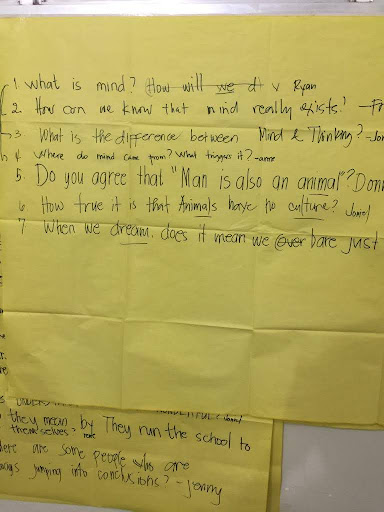 1 What is mind? (How will we d) v Ryan
2. How can we know that mind really exists? -Fr
3. What is the difference between Mind & Thinking? -Jon
4 Where do mind came from? What triggers it? -anne
5. Do you agree that "Man is also an animal"? Donn
6 How true it is that Animals have no culture? Janiel
7 When we dream, does it mean we over bare just
they mean by They run the school to
themselves?
here are some people who are
ways jumping into conclusions? -Jonny